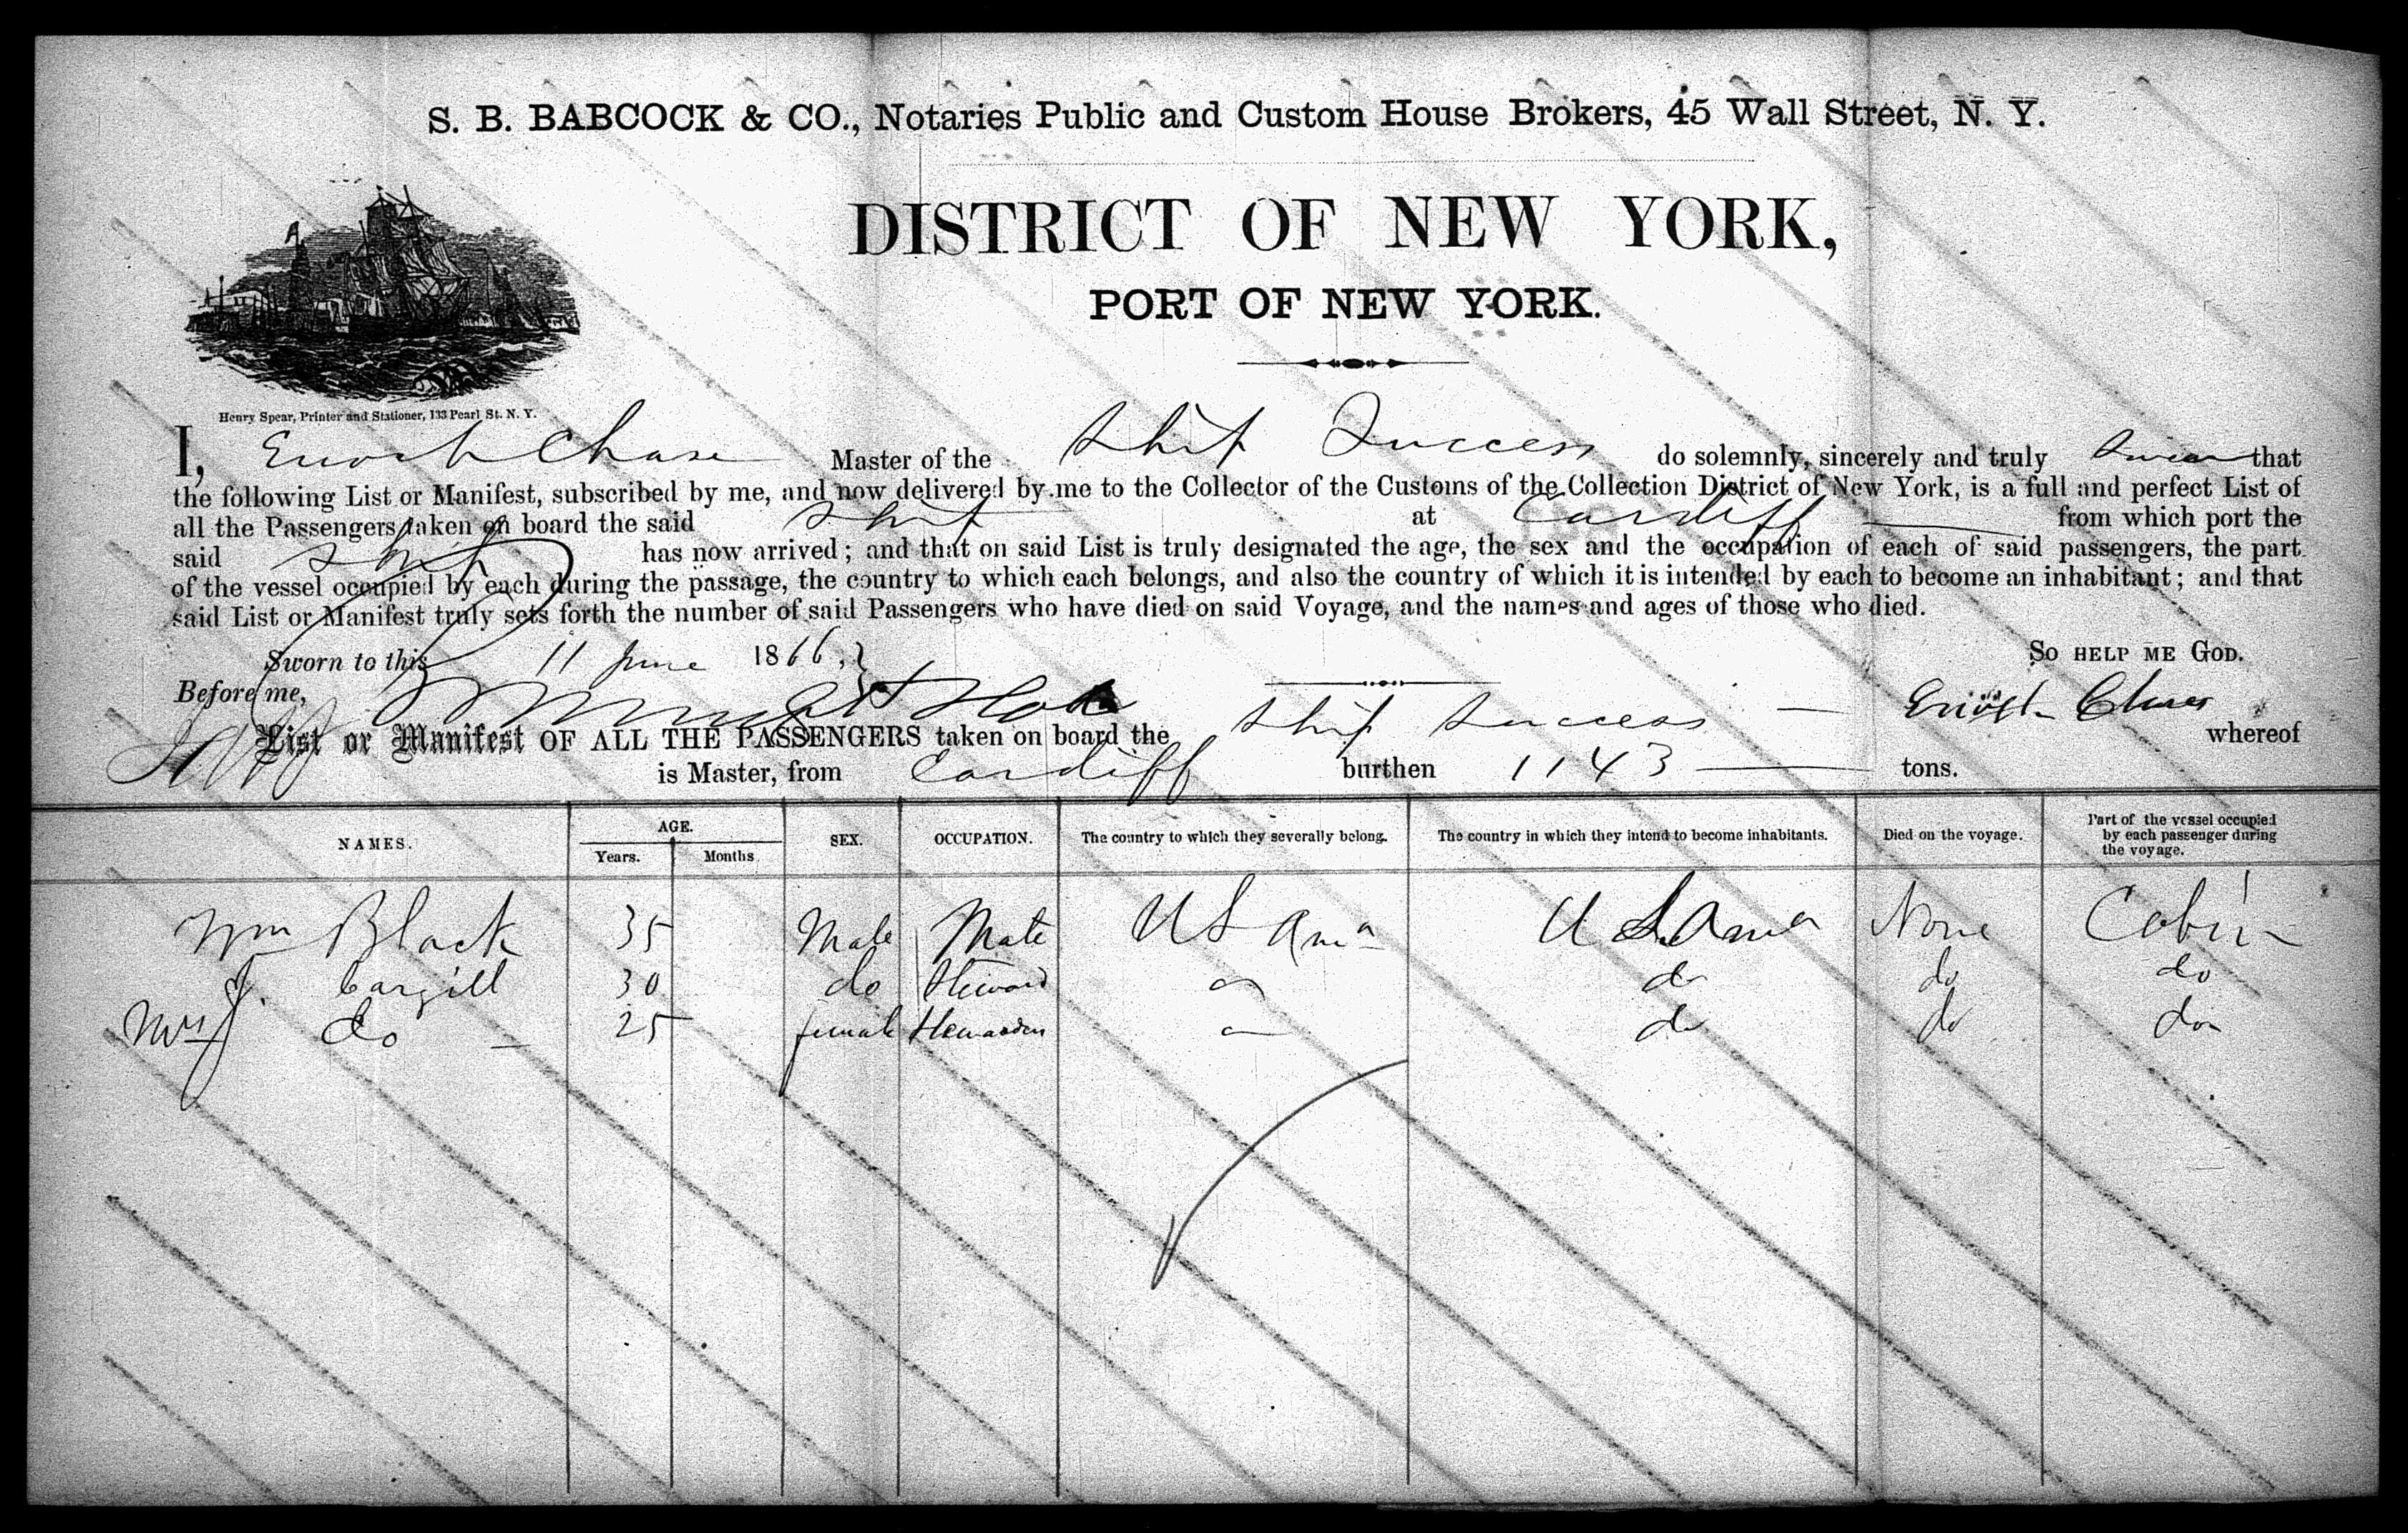 S. B. BABCOCK & CO., Notaries Public and Custom House Brokers, 45 Wall Street, N. Y.
DISTRICT OF NEW YORK,
PORT OF NEW YORK.
Henry Spear, Printer and Stationer, 133 Pearl St. N. Y.
I, Enoch Chase Master of the Ship Success do solemnly, sincerely and truly swear that
the following List or Manifest, subscribed by me, and now delivered by me to the Collector of the Customs of the Collection District of New York, is a full and perfect List of
all the Passengers taken on board the said Ship at Cardiff from which port the
said Ship has now arrived; and that on said List is truly designated the age, the sex and the occupation of each of said passengers, the part
of the vessel occupied by each during the passage, the country to which each belongs, and also the country of which it is intended by each to become an inhabitant; and that
said List or Manifest truly sets forth the number of said Passengers who have died on said Voyage, and the names and ages of those who died.
Sworn to this 11 June 1866, SO HELP ME GOD.
Before me, Enoch Chase
List or Manifest OF ALL THE PASSENGERS taken on board the Ship Success — whereof
is Master, from Cardiff burthen 1143 — tons.
NAMES. AGE. Years. Months. SEX. OCCUPATION. The country to which they severally belong. The country in which they intend to become inhabitants. Died on the voyage. Part of the vessel occupied by each passenger during the voyage.
Wm Black 35 Male Mate U S Ama U S Ama None Cabin
J. Cargill 30 do Steward do do do
Mrs J. do — 25 female Stewardess do do do